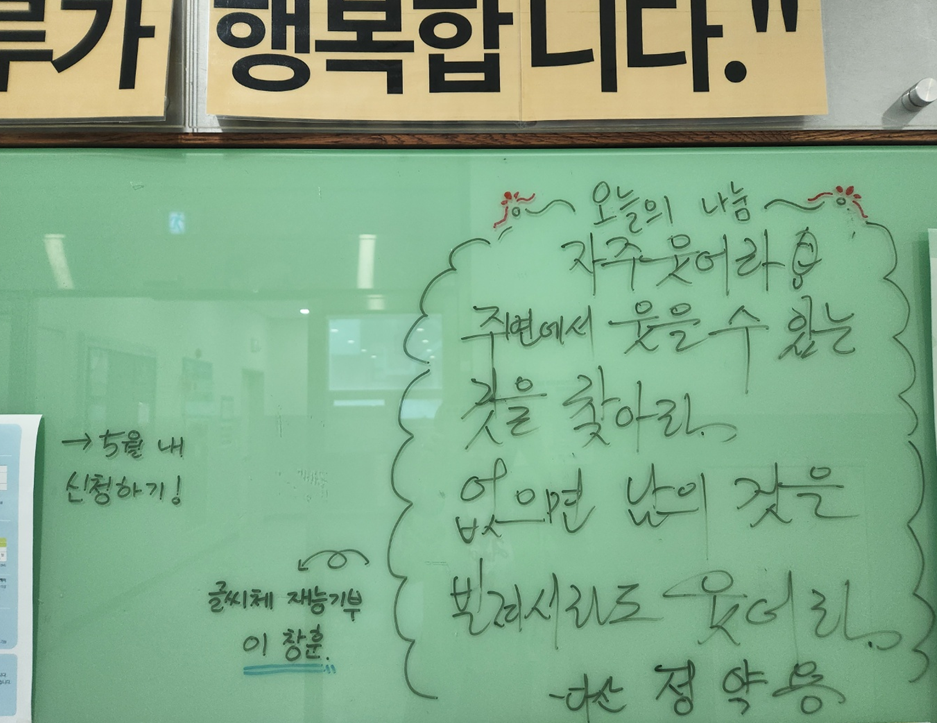 루가 행복합니다."
오늘의 나눔
자주 웃어라
주변에서 웃을 수 있는
것을 찾아라..
없으면 남의 것을
빌려서라도 웃어라..
-다산 정약용
→ 5월 내
신청하기!
글씨체 재능기부
이 창훈.